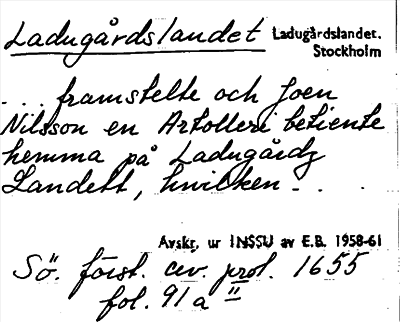 Ladugårdslandet
Ladugårdslandet.
Stockholm
... framstelte och Joen
Nilsson en Artolleri betiente
hemma på Ladugårdz
Landett, hvilcken ...
Avskr. ur INSSU av E.B. 1958-61
Sö. först. civ. prot. 1655
fol. 91 a II